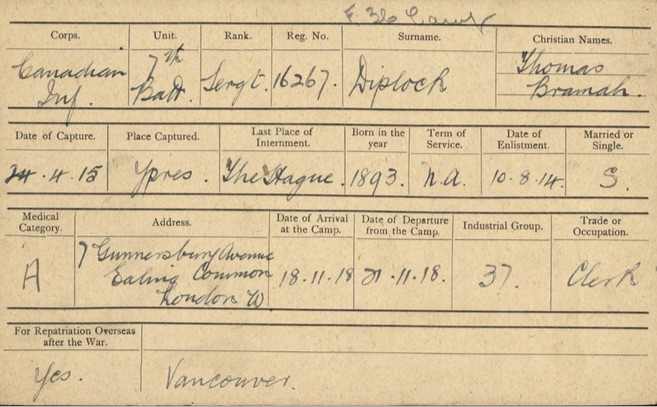 Corps. Unit. Rank. Reg. No. Surname. Christian Names.
Canadian Inf. 7th Batt. Sergt. 16267. Diplock Thomas Bramah.
Date of Capture. Place Captured. Last Place of Internment. Born in the year Term of Service. Date of Enlistment. Married or Single.
24.4.15 Ypres. The Hague. 1893. N.A. 10.8.14. S.
Medical Category. Address. Date of Arrival at the Camp. Date of Departure from the Camp. Industrial Group. Trade or Occupation.
A 7 Gunnersbury Avenue Ealing Common London W 18.11.18 21.11.18. 37. Clerk
For Repatriation Overseas after the War.
Yes. Vancouver.